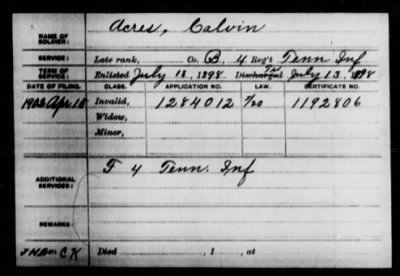 Acres, Calvin
NAME OF SOLDIER:
SERVICE: Late rank, Co. B, 4 Reg't Tenn Inf
TERM OF SERVICE: Enlisted July 11, 1898 Discharged July 13, 1898
DATE OF FILING. CLASS. APPLICATION NO. LAW. CERTIFICATE NO.
1902 Apr 18 Invalid, 1284012 1192806
Widow,
Minor,
ADDITIONAL SERVICES: F 4 Tenn. Inf
REMARKS:
Died , 1 , at